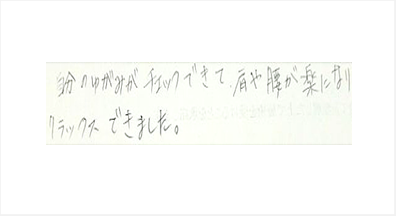 自分のゆがみがチェックできて、肩や腰が楽になり
リラックスできました。